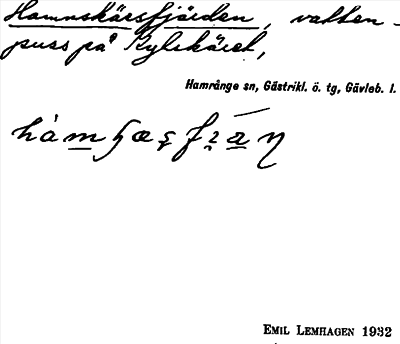 Hamnskärsfjärden, vatten-
puss på Kylskäret,
Hamrånge sn, Gästrikl. ö. tg, Gävleb. l.
EMIL LEMHAGEN 1932